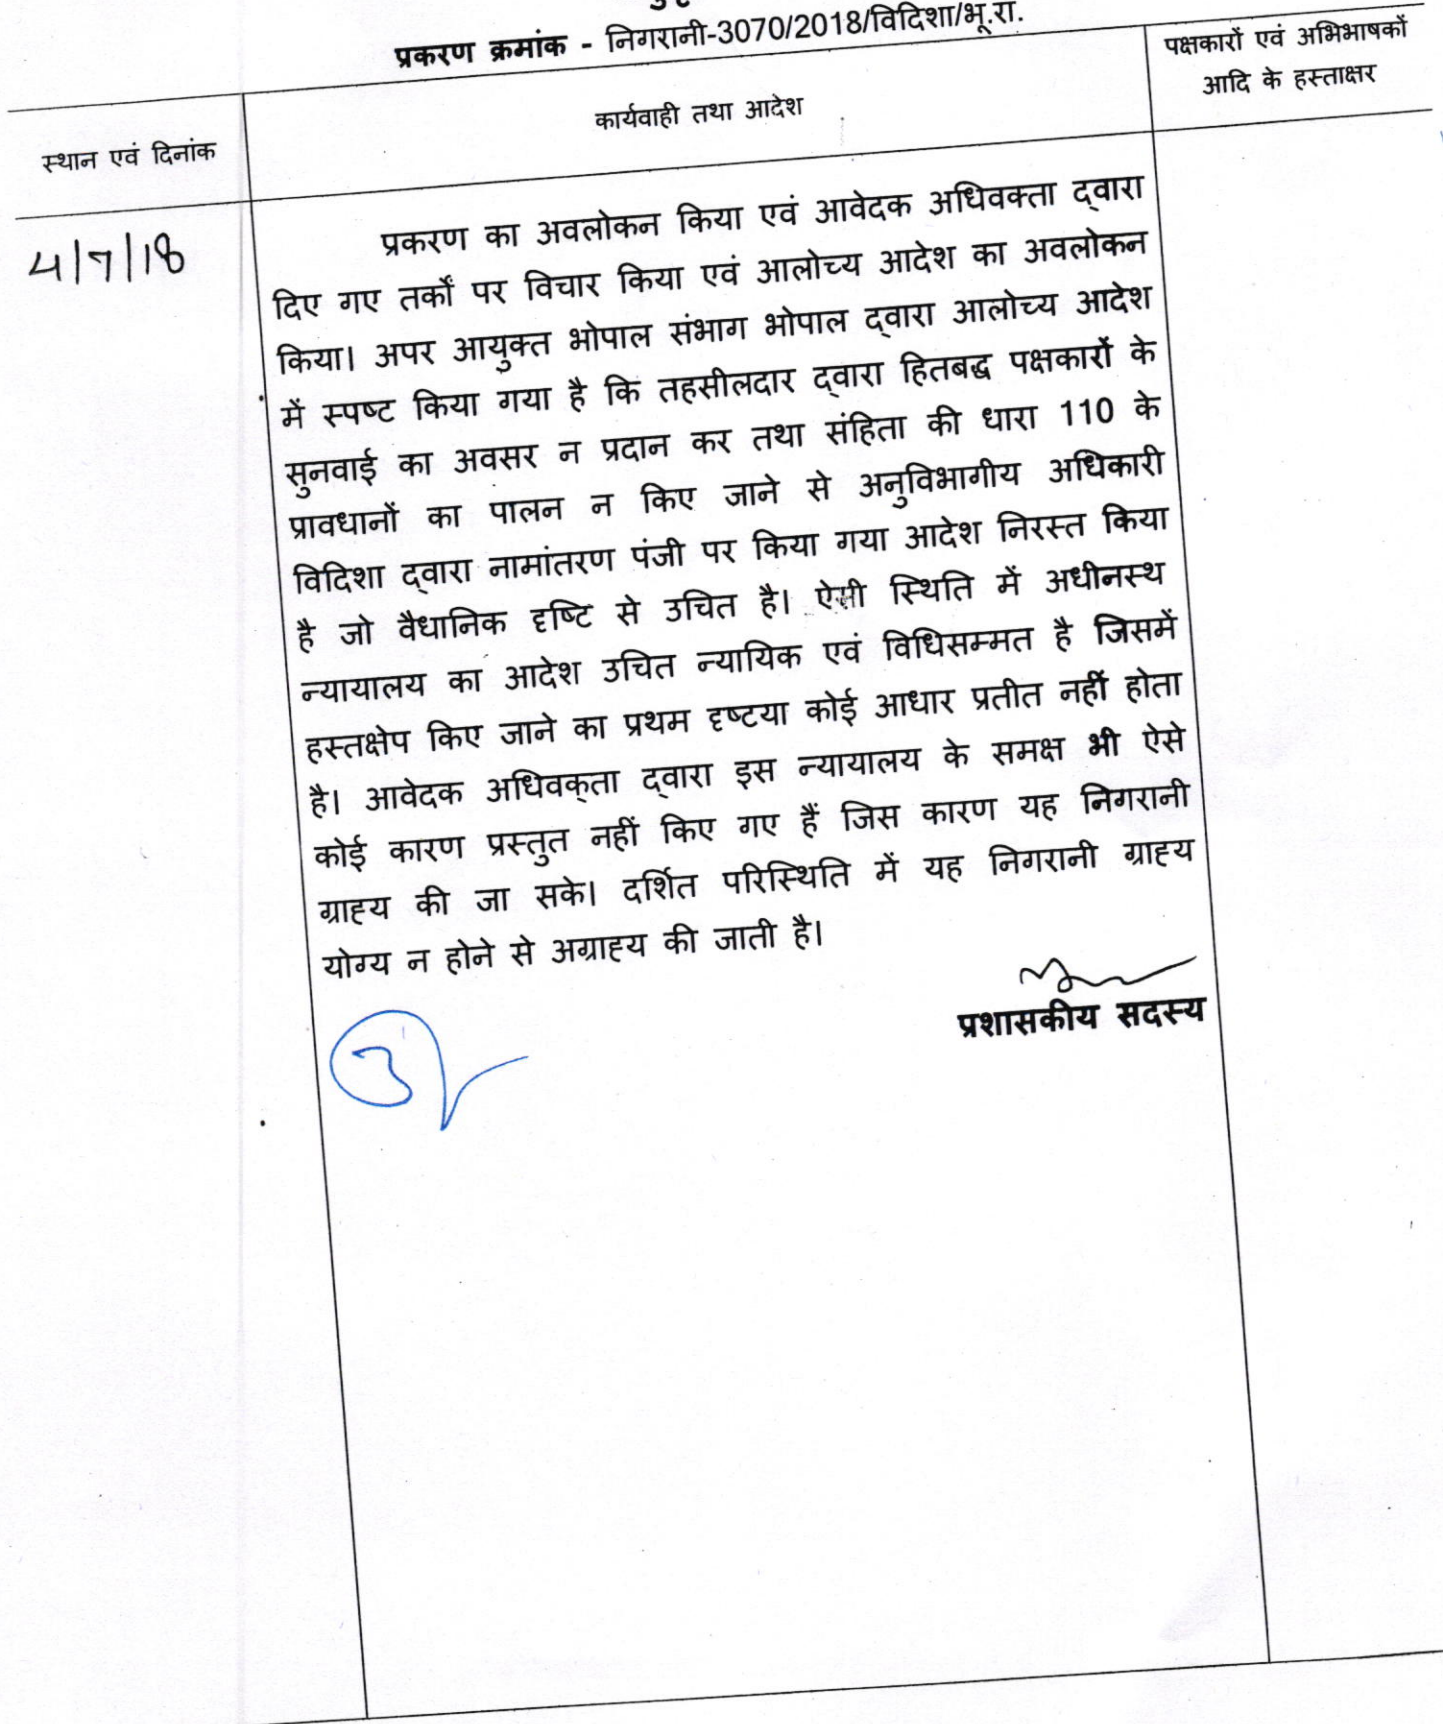 प्रकरण क्रमांक - निगरानी-3070/2018/विदिशा/भू.रा.
स्थान एवं दिनांक
कार्यवाही तथा आदेश
पक्षकारों एवं अभिभाषकों
आदि के हस्ताक्षर
4/7/18
प्रकरण का अवलोकन किया एवं आवेदक अधिवक्ता द्वारा
दिए गए तर्कों पर विचार किया एवं आलोच्य आदेश का अवलोकन
किया। अपर आयुक्त भोपाल संभाग भोपाल द्वारा आलोच्य आदेश
में स्पष्ट किया गया है कि तहसीलदार द्वारा हितबद्ध पक्षकारों के
सुनवाई का अवसर न प्रदान कर तथा संहिता की धारा 110 के
प्रावधानों का पालन न किए जाने से अनुविभागीय अधिकारी
विदिशा द्वारा नामांतरण पंजी पर किया गया आदेश निरस्त किया
है जो वैधानिक दृष्टि से उचित है। ऐसी स्थिति में अधीनस्थ
न्यायालय का आदेश उचित न्यायिक एवं विधिसम्मत है जिसमें
हस्तक्षेप किए जाने का प्रथम दृष्टया कोई आधार प्रतीत नहीं होता
है। आवेदक अधिवक्ता द्वारा इस न्यायालय के समक्ष भी ऐसे
कोई कारण प्रस्तुत नहीं किए गए हैं जिस कारण यह निगरानी
ग्राह्य की जा सके। दर्शित परिस्थिति में यह निगरानी ग्राह्य
योग्य न होने से अग्राह्य की जाती है।
प्रशासकीय सदस्य